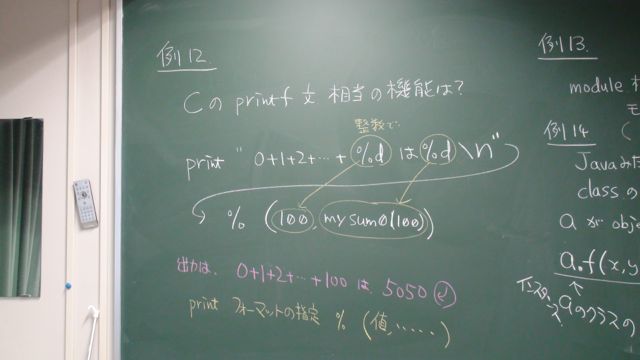 例12.
Cの printf 文 相当の機能は?
整数で
print " 0+1+2+…+ %d は %d \n"
% (100, mysum0(100))
出力は、0+1+2+…+100 は 5050 ↵
print フォーマットの指定 % (値, ‥‥‥)
例13.
module
例14
Javaみた
classの
a が obje
a.f(x,y
インスタンス
aのクラスの